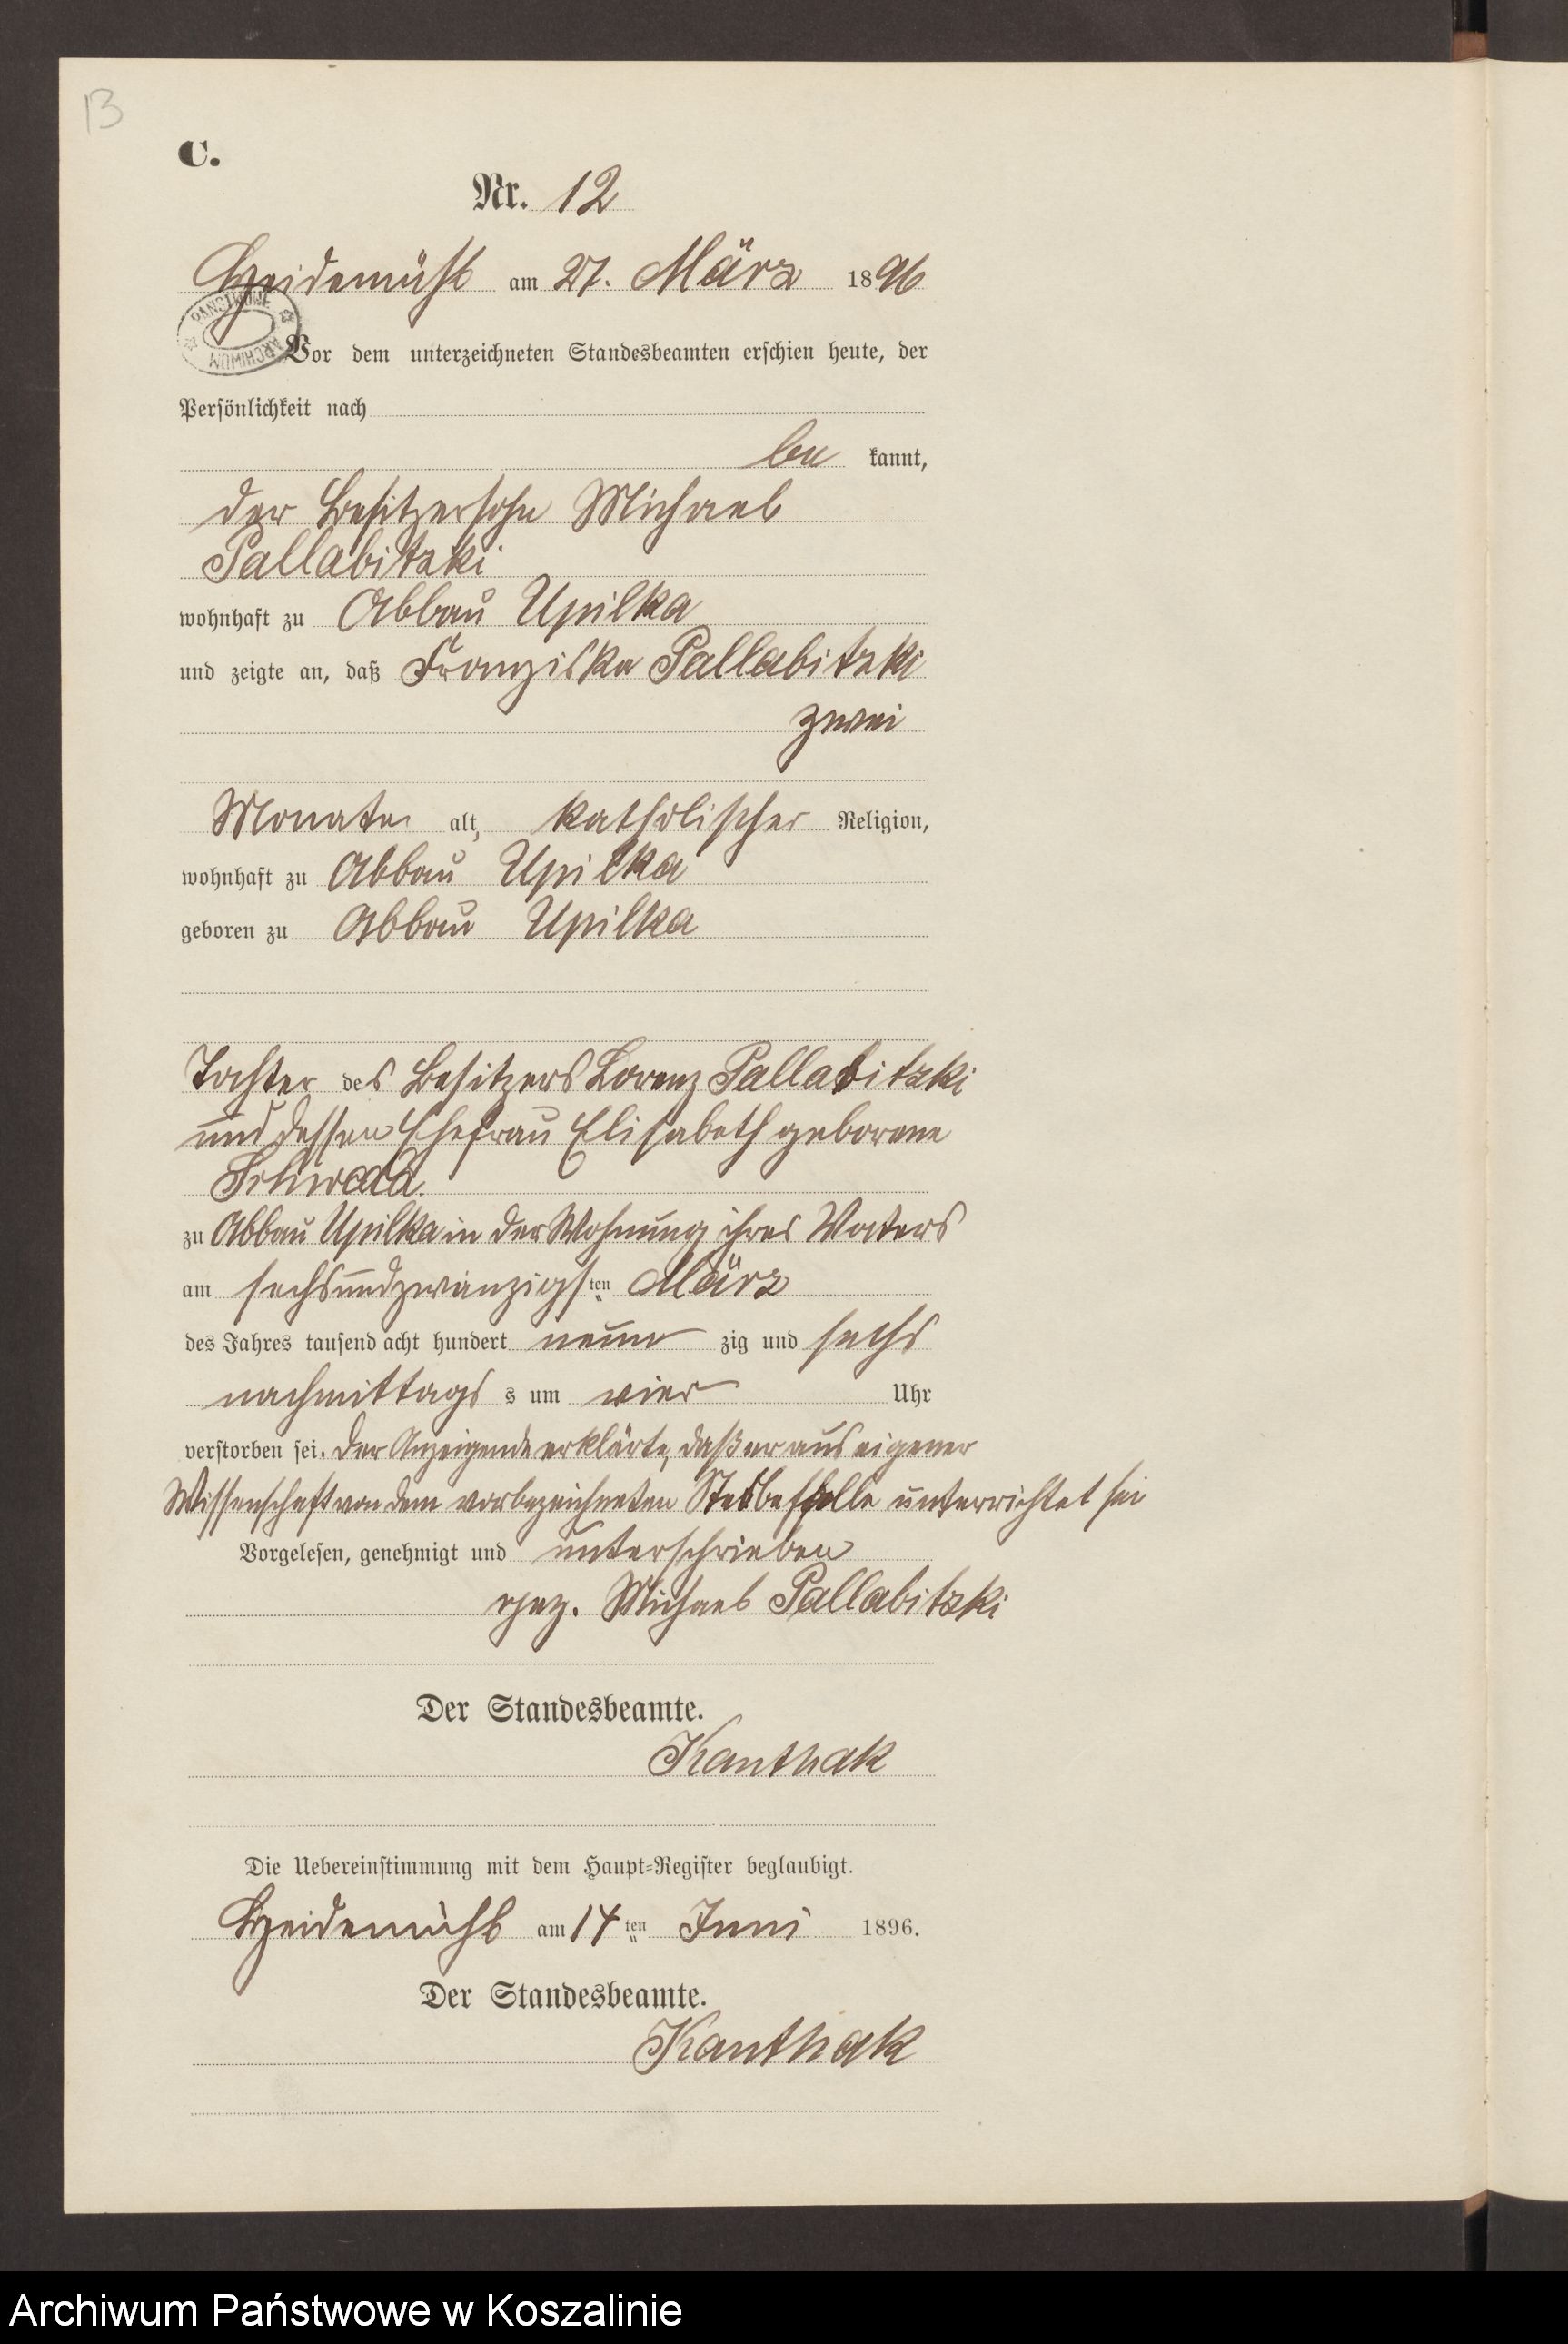 13
C.
Nr. 12
Heidemühl am 27. März 1896
PAŃSTWOWE ARCHIWUM
Vor dem unterzeichneten Standesbeamten erschien heute, der
Persönlichkeit nach
be kannt,
der Besitzersohn Michael
Pallabitzki
wohnhaft zu Abbau Upilka
und zeigte an, daß Franziska Pallabitzki
zwei
Monate alt, katholischer Religion,
wohnhaft zu Abbau Upilka
geboren zu Abbau Upilka
Tochter des Besitzers Lorenz Pallabitzki
und dessen Ehefrau Elisabeth geborene
zu Abbau Upilka in der Wohnung ihres Vaters
am sechsundzwanzigsten März
des Jahres tausend acht hundert neun zig und sechs
nachmittags s um vier Uhr
verstorben sei. Der Anzeigende erklärte, daß er aus eigener
Wissenschaft von dem vorbezeichneten unterrichtet sei
Vorgelesen, genehmigt und unterschrieben
gez. Michael Pallabitzki
Der Standesbeamte.
Kanthak
Die Uebereinstimmung mit dem Haupt=Register beglaubigt.
Heidemühl am 14ten Juni 1896.
Der Standesbeamte.
Kanthak
Archiwum Państwowe w Koszalinie